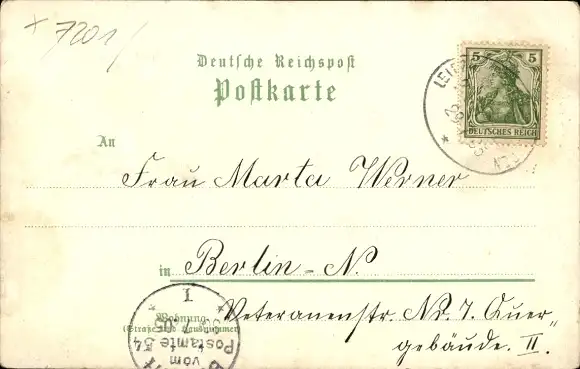 7201/
Deutsche Reichspost
Postkarte
5 5
DEUTSCHES REICH
An
Frau Marta Werner
in Berlin-N.
Wohnung
(Straße und Hausnummer)
Veteranenstr. No. 7. Quer-
gebäude. II.
I
vom
Postamte 54